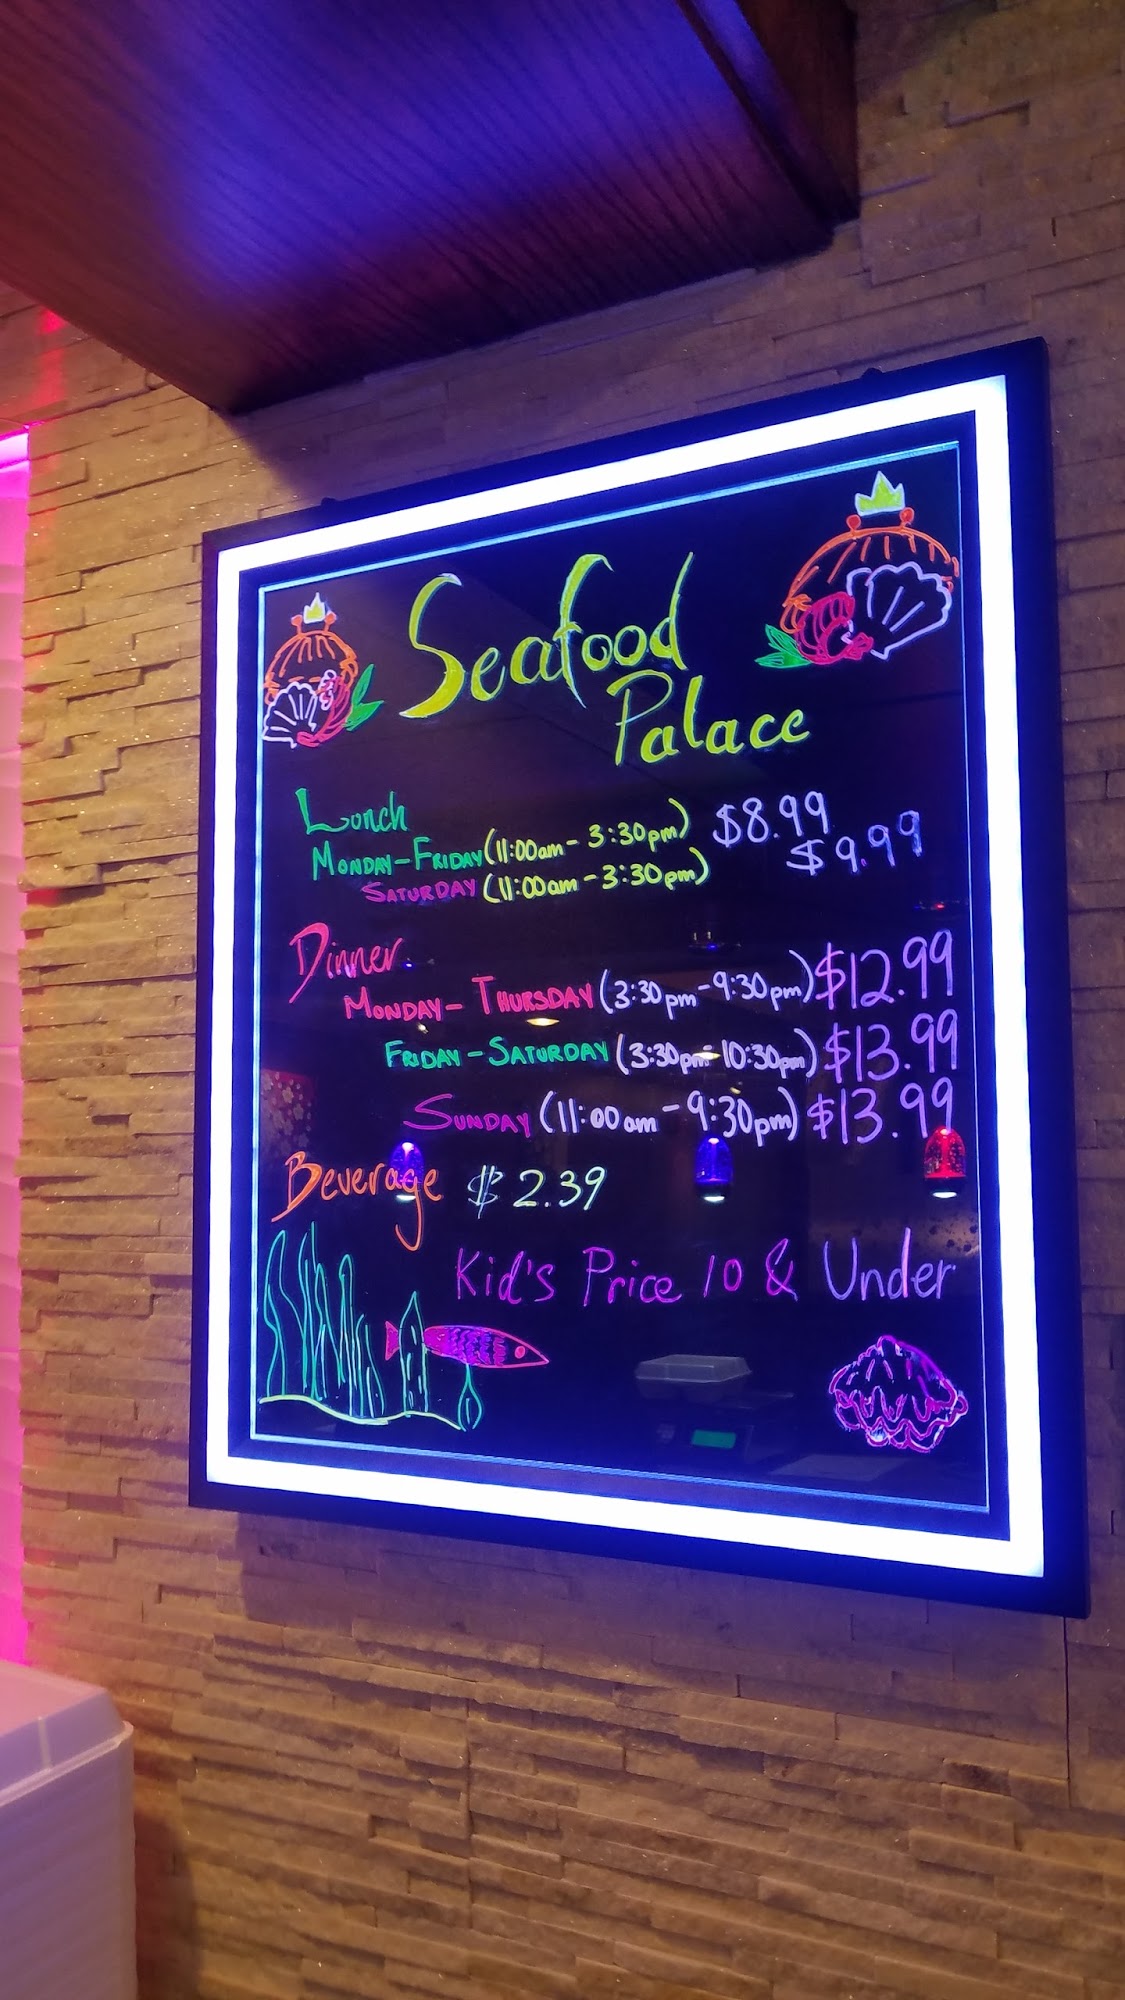 Seafood
Palace
Lunch
Monday-Friday (11:00am - 3:30pm) $8.99
Saturday (11:00am - 3:30pm) $9.99
Dinner
Monday- Thursday (3:30pm - 9:30pm) $12.99
Friday - Saturday (3:30pm - 10:30pm) $13.99
Sunday (11:00am - 9:30pm) $13.99
Beverage $2.39
Kid's Price 10 & Under